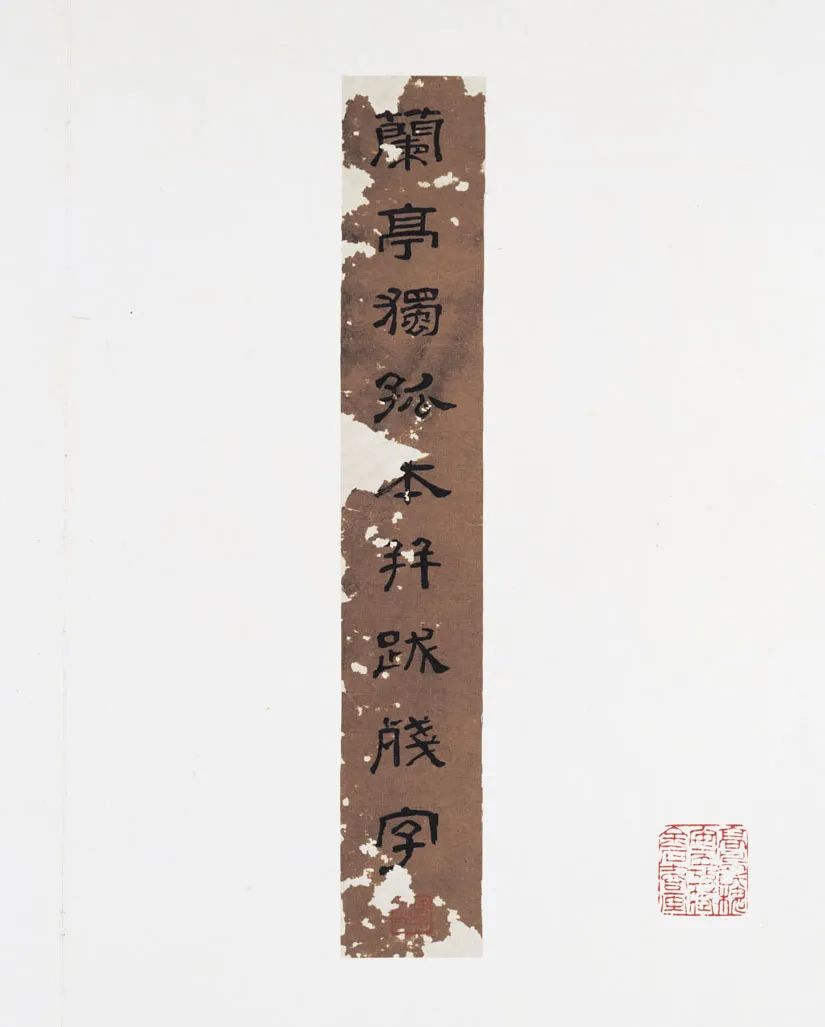 蘭亭獨孤本幷跋殘字